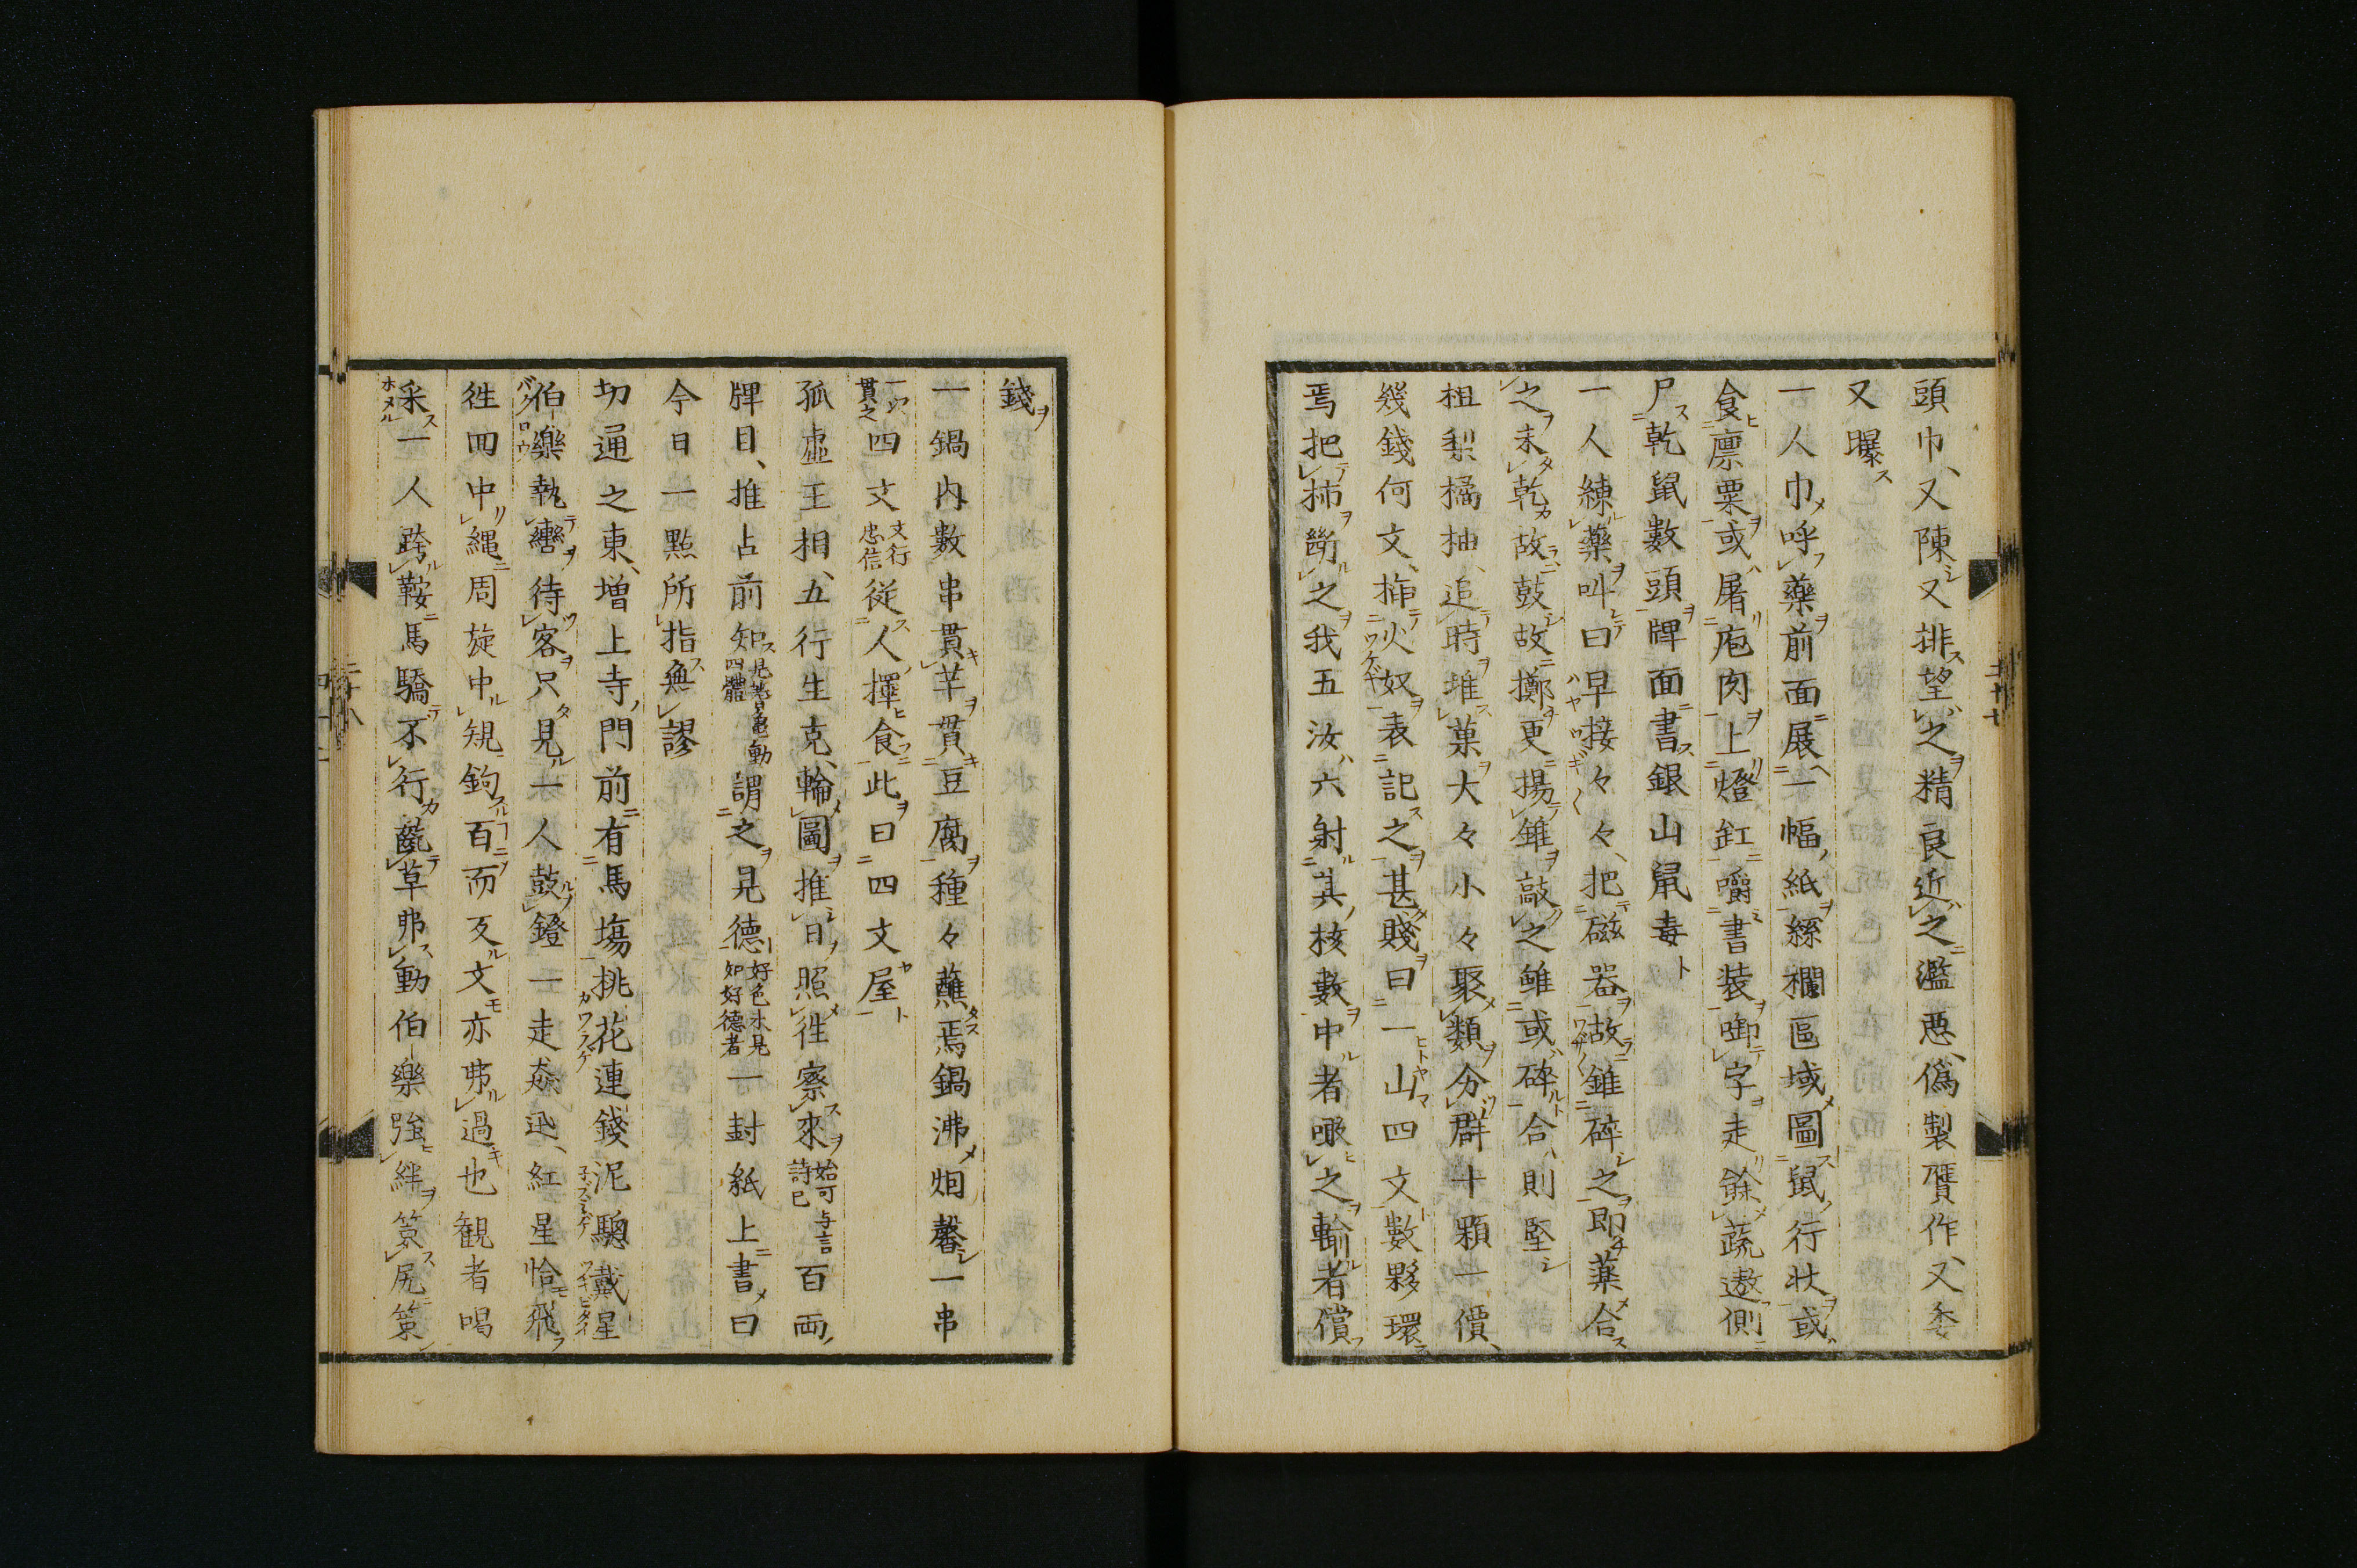 頭巾、又陳又排望之精良近之濫惡、偽製贋作、又委
又曝
一人巾呼藥前面展一幅紙絲欄區域圖鼠行状或
食廩粟或屠庖肉上燈缸嚼書装啣字走餘蔬遨側
尸乾鼠數頭牌面書銀山鼠毒
一人練藥叫曰早接々々、把磁器故錐碎之即薬合
之未乾故鼓故擲更揚錐敲之雖或碎合則堅
柤梨橘柚、追時堆菓大々小々聚類分群十顆一價、
幾錢何文、挿火奴表記之甚賤曰一山四文數夥環
焉把柿衡之我五汝六射其核數中者啖之輸者償
錢
一鍋内數串貫芋貫豆腐種々蘸焉鍋沸烟馨一串
貫之四文文行忠信從人擇食此曰四文屋
孤虚王相、五行生克、輪圖推日照徃察來始可与言詩已百両
牌目、推占前知見蓍龜動四體謂之見德好色未見如好德者一封紙上書曰
今日一點所指無謬
切通之東、増上寺門前有馬塲挑花連錢泥驄戴星
伯樂執轡待客只見一人鼓鐙一走猋迅、紅星恰飛
徃囬中縄周旋中規鉤百而反文亦弗過也観者喝
采一人跨鞍馬驕不行齕草弗動伯樂強絆䇲尻䇲